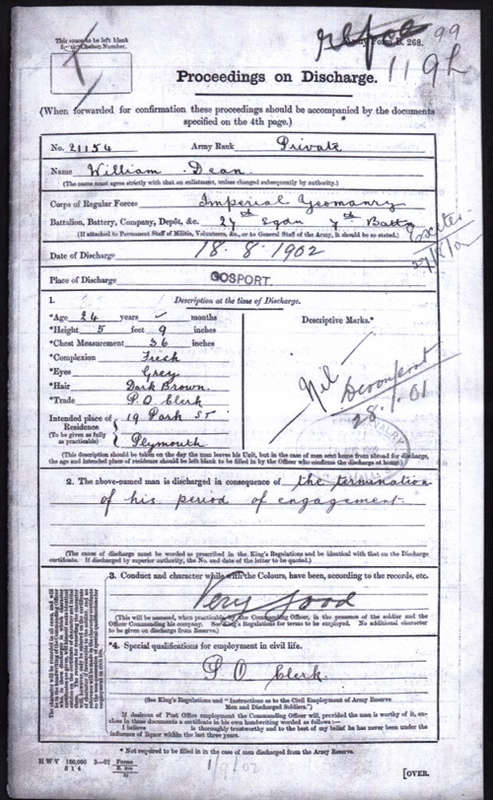 This corner to be left blank
for the Chelsea Number.
Army Form B. 268.
99
119h
Proceedings on Discharge.
(When forwarded for confirmation these proceedings should be accompanied by the documents
specified on the 4th page.)
No. 21154 Army Rank Private
Name William Dean
(The name must agree strictly with that on enlistment, unless changed subsequently by authority.)
Corps of Regular Forces Imperial Yeomanry
Battalion, Battery, Company, Depôt, &c. 27th Sqdn 7th Battn
(If attached to Permanent Staff of Militia, Volunteers, &c., or to General Staff of the Army, it should be so stated.)
Exeter
Date of Discharge 18.8.1902
Place of Discharge GOSPORT.
1. Description at the time of Discharge.
*Age 24 years — months
*Height 5 feet 9 inches
*Chest Measurement 36 inches
*Complexion Fresh
*Eyes Grey
*Hair Dark Brown.
*Trade P.O. Clerk
Intended place of Residence 19 Park St
(To be given as fully as practicable) Plymouth
Descriptive Marks.*
Nil
Devonport
28.1.01
(This description should be taken on the day the man leaves his Unit, but in the case of men sent home from abroad for discharge,
the age and intended place of residence should be left blank to be filled in by the Officer who confirms the discharge at home.)
2. The above-named man is discharged in consequence of the termination
of his period of engagement
(The cause of discharge must be worded as prescribed in the King's Regulations and be identical with that on the Discharge
certificate. If discharged by superior authority, the No. and date of the letter to be quoted.)
3. Conduct and character while with the Colours, have been, according to the records, etc.
Very good
(This will be assessed, when practicable, by the Commanding Officer, in the presence of the soldier and the
Officer Commanding his company. See King's Regulations for terms to be employed. No additional character
to be given on discharge from Reserve.)
*4. Special qualifications for employment in civil life.
P O Clerk.
(See King's Regulations and "Instructions as to the Civil Employment of Army Reserve
Men and Discharged Soldiers.")
If desirous of Post Office employment the Commanding Officer will, provided the man is worthy of it, en-
close in these documents a certificate in his own handwriting worded as follows:—
I believe is thoroughly trustworthy and to the best of my belief he has never been under the
influence of liquor within the last three years.
* Not required to be filled in in the case of men discharged from the Army Reserve.
H W V 100,000 3—02 Forms
1/9/02
[OVER.